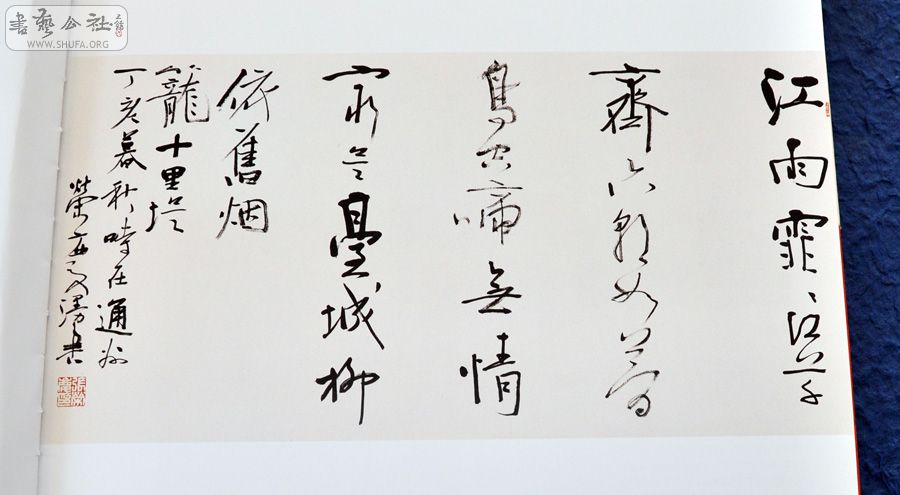 書藝公社
WWW.SHUFA.ORG
江雨霏〻江草
齊六朝如夢
鳥空啼無情
最是臺城柳
依舊烟
籠十里堤
丁亥暮秋時在通州
榮慶書